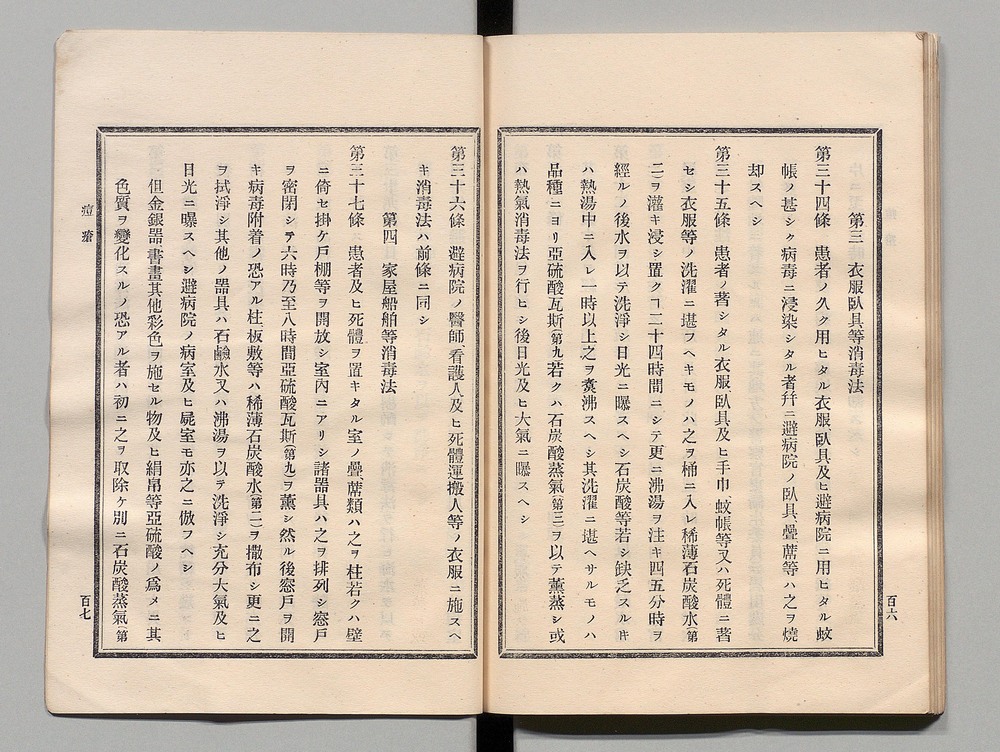 第三　衣服臥具等消毒法
第三十四條　患者ノ久ク用ヒタル衣服臥具及ヒ避病院ニ用ヒタル蚊
帳ノ甚シク病毒ニ浸染シタル者幷ニ避病院ノ臥具、疊蓆等ハ之ヲ燒
却スヘシ
第三十五條　患者ノ著シタル衣服臥具及ヒ手巾、蚊帳等又ハ死體ニ著
セシ衣服等ノ洗濯ニ堪フヘキモノハ之ヲ桶ニ入レ稀薄石炭酸水(第
二)ヲ灌キ浸シ置クヿ二十四時間ニシテ更ニ沸湯ヲ注キ四五分時ヲ
經ルノ後水ヲ以テ洗淨シ日光ニ曝スヘシ石炭酸等若シ缺乏スルキ
ハ熱湯中ニ入レ一時以上之ヲ煑沸スヘシ其洗濯ニ堪ヘサルモノハ
品種ニヨリ亞硫酸瓦斯(第九)若クハ石炭酸蒸氣(第三)ヲ以テ薰蒸シ或
ハ熱氣消毒法ヲ行ヒシ後日光及ヒ大氣ニ曝スヘシ
百六
第三十六條　避病院ノ醫師、看護人及ヒ死體運搬人等ノ衣服ニ施スヘ
キ消毒法ハ前條ニ同シ
第四　家屋船舶等消毒法
第三十七條　患者及ヒ死體ヲ置キタル室ノ疊蓆類ハ之ヲ柱若クハ壁
ニ倚セ掛ケ戸棚等ヲ開放シ室內ニアリシ諸器具ハ之ヲ排列シ窓戸
ヲ密閉シテ六時乃至八時間亞硫酸瓦斯(第九)ヲ薰シ然ル後窓戸ヲ開
キ病毒附着ノ恐アル柱、板敷等ハ稀薄石炭酸水(第二)ヲ撒布シ更ニ之
ヲ拭淨シ其他ノ器具ハ石鹼水又ハ沸湯ヲ以テ洗淨シ充分大氣及ヒ
日光ニ曝スヘシ避病院ノ病室及ヒ屍室モ亦之ニ倣フヘシ
但金銀器、書畫其他彩色ヲ施セル物及ヒ絹帛等亞硫酸ノ爲メニ其
色質ヲ變化スルノ恐アル者ハ初ニ之ヲ取除ケ別ニ石炭酸蒸氣(第
痘瘡
百七